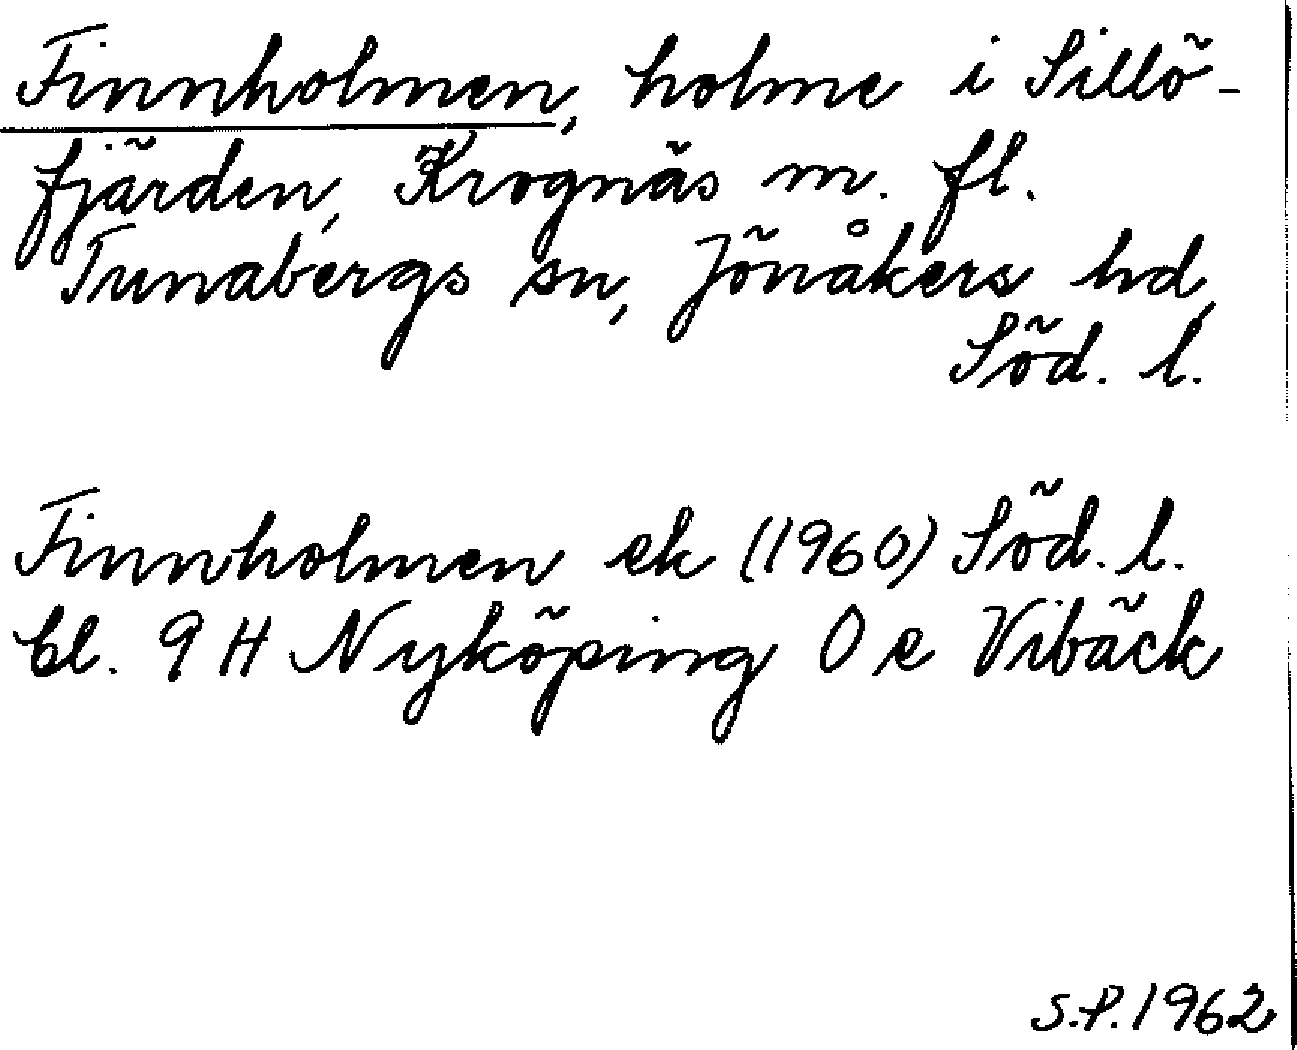 Finnholmen, holme i Sillö-
fjärden, Krognäs m. fl.
Tunabergs sn, Jönåkers hd,
Söd. l.
Finnholmen ek (1960) Söd. l.
bl. 9 H Nyköping 0 e Vibäck
S.P. 1962